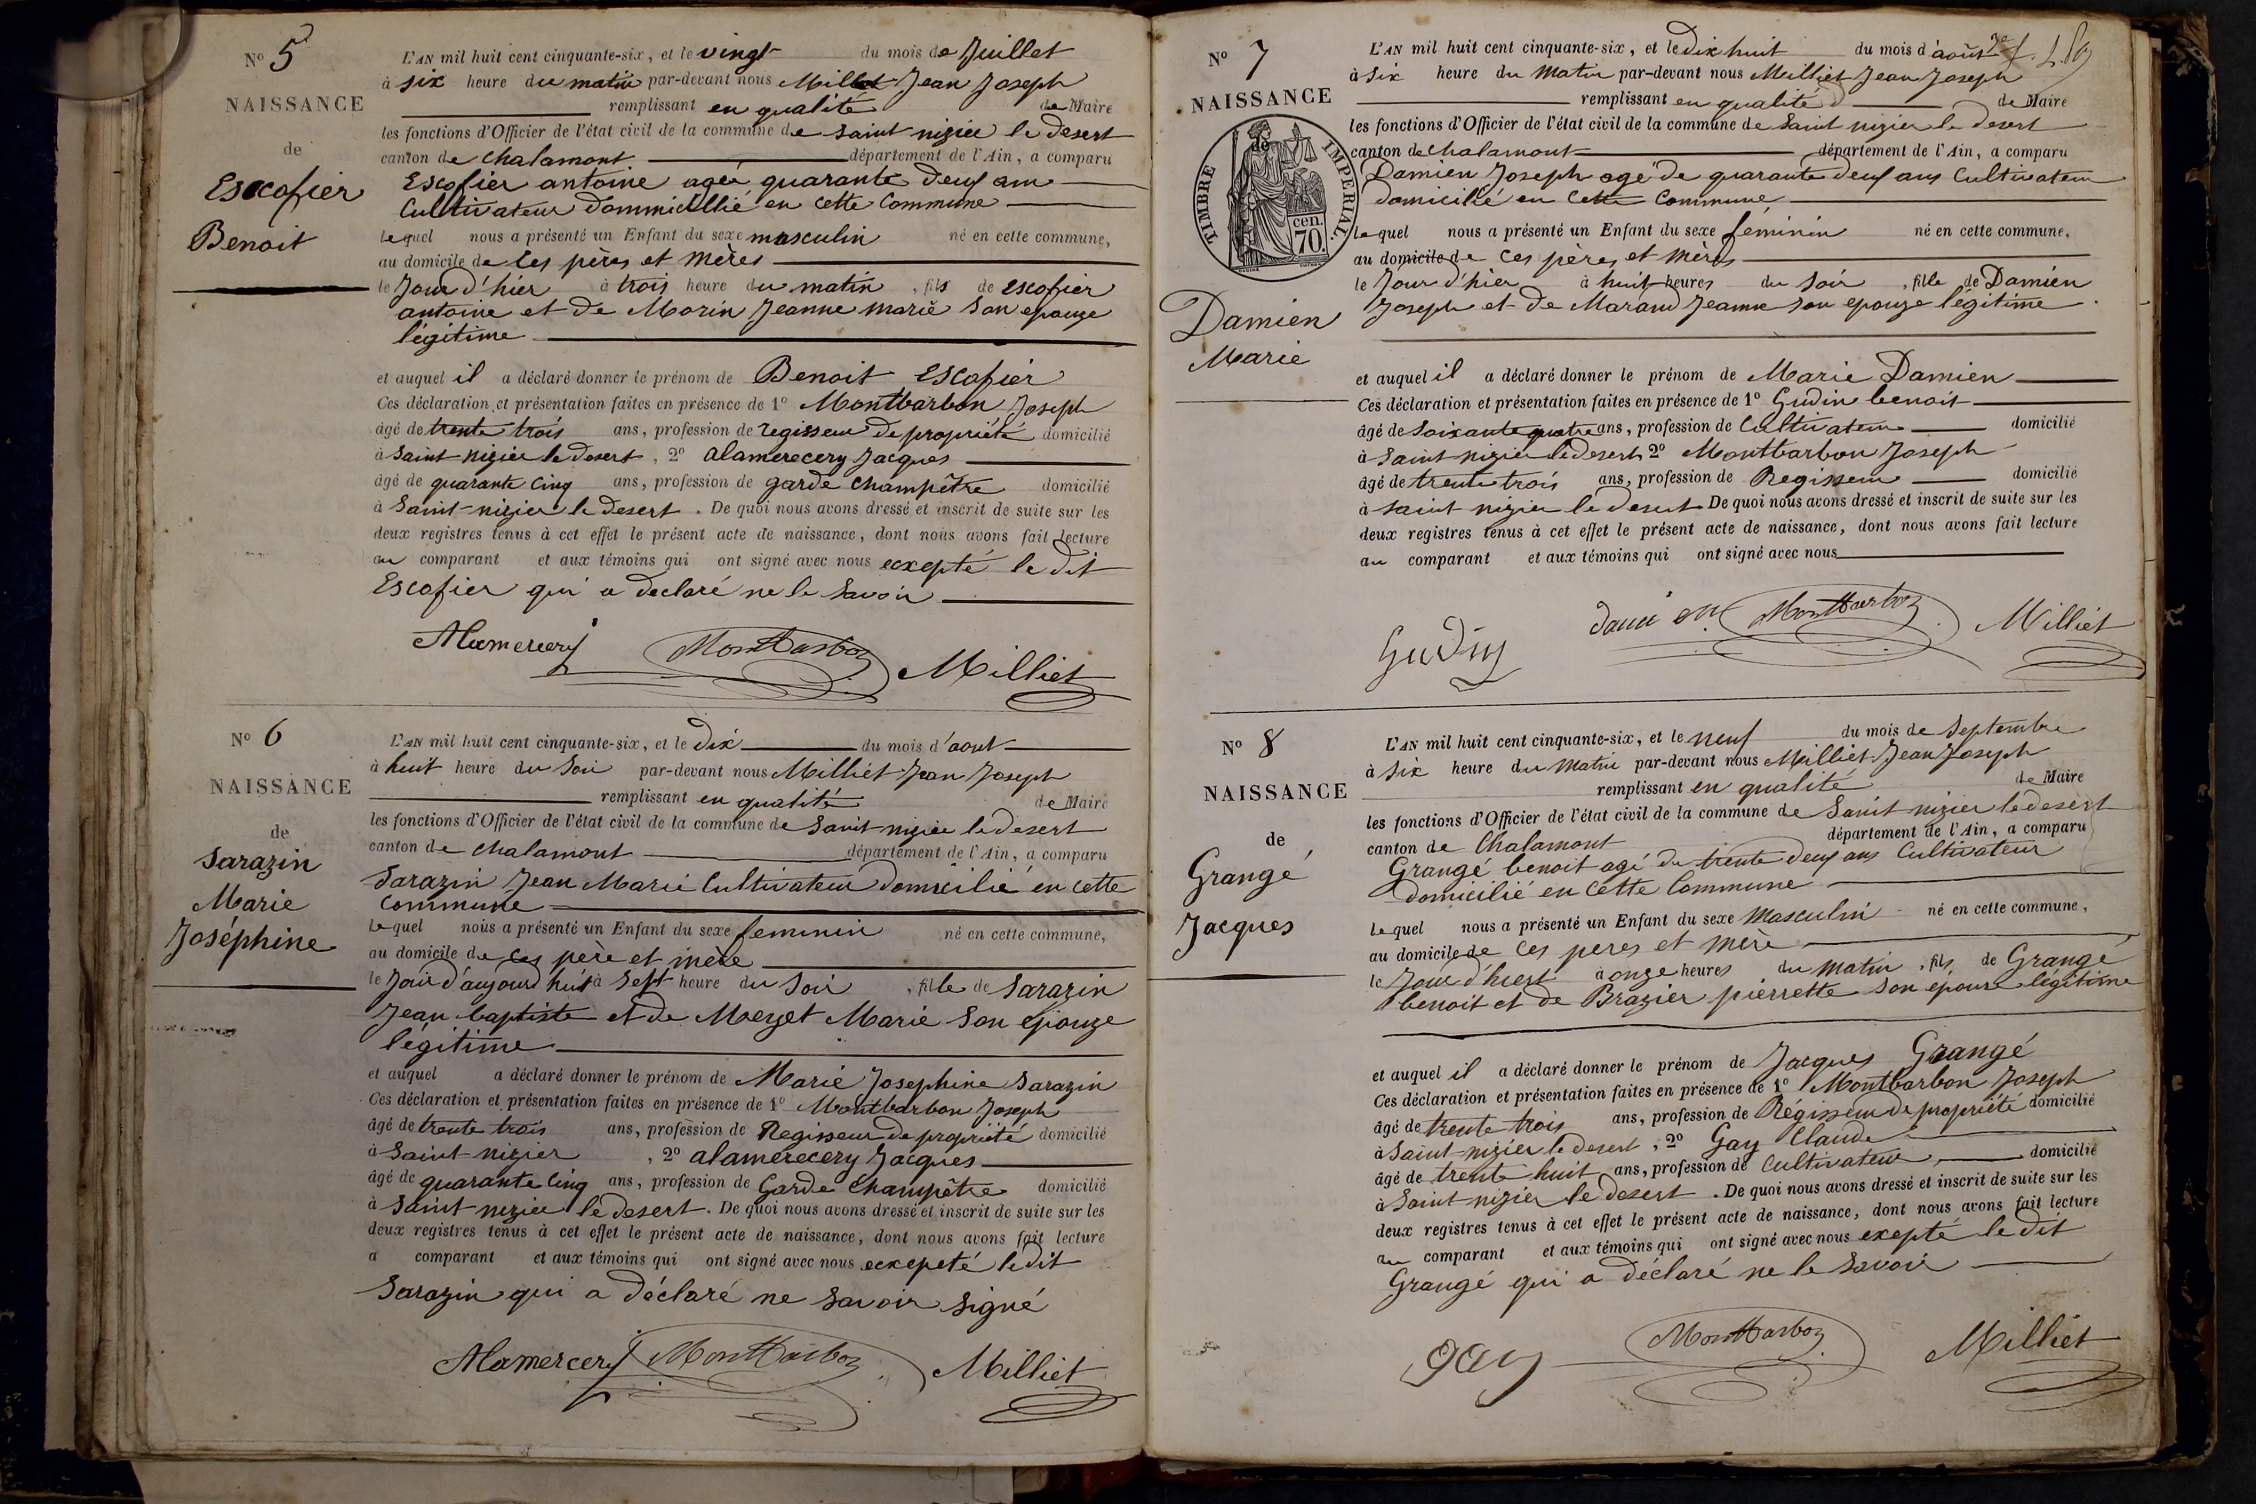 N° 5
NAISSANCE
de
Escofier
Benoit
L'AN mil huit cent cinquante-six, et le vingt du mois de Juillet
à six heure du matin par-devant nous Milliet Jean Joseph
remplissant en qualité de Maire
les fonctions d'Officier de l'état civil de la commune de saint nizier le desert
canton de chalamont département de l'Ain, a comparu
Escofier antoine agée quarante deux ans
Cultivateur dommicillié en cette Commune
lequel nous a présenté un Enfant du sexe masculin né en cette commune,
au domicile de ces pères et mères
le Jour d'hier à trois heure du matin, fils de escofier
antoine et de Morin Jeanne marie son epouze
légitime
et auquel il a déclaré donner le prénom de Benoit Escofier
Ces déclaration et présentation faites en présence de 1° Montbarbon Joseph
âgé de trente trois ans, profession de regisseur de propriété domicilié
à saint nizier le desert, 2° alamerecery Jacques
âgé de quarante cinq ans, profession de garde champêtre domicilié
à Saint-nizier le desert. De quoi nous avons dressé et inscrit de suite sur les
deux registres tenus à cet effet le présent acte de naissance, dont nous avons fait lecture
au comparant et aux témoins qui ont signé avec nous excepté le dit
Escofier qui a declaré ne le savoir
Alamercery Montbarbon Milliet
N° 6
NAISSANCE
de
Sarazin
Marie
Joséphine
L'AN mil huit cent cinquante-six, et le dix du mois d'aout
à huit heure du soir par-devant nous Milliet Jean Joseph
remplissant en qualité de Maire
les fonctions d'Officier de l'état civil de la commune de saint nizier le desert
canton de chalamont département de l'Ain, a comparu
Sarazin Jean Marie Cultivateur domicilié en cette
commune
lequel nous a présenté un Enfant du sexe feminin né en cette commune,
au domicile de ces père et mère
le Jour d'aujourd'hui à sept heure du soir, fille de Sarazin
Jean baptiste et de Merget Marie son epouze
légitime
et auquel a déclaré donner le prénom de Marie Josephine Sarazin
Ces déclaration et présentation faites en présence de 1° Montbarbon Joseph
âgé de trente trois ans, profession de Regisseur de propriété domicilié
à Saint-nizier, 2° alamerecery Jacques
âgé de quarante cinq ans, profession de Garde Champêtre domicilié
à Saint nizier le desert. De quoi nous avons dressé et inscrit de suite sur les
deux registres tenus à cet effet le présent acte de naissance, dont nous avons fait lecture
a comparant et aux témoins qui ont signé avec nous eckepeté le dit
Sarazin qui a déclaré ne savoir signé
Alamercery Montbarbon Milliet
N° 7
NAISSANCE
de
TIMBRE IMPERIAL.
cen.
70.
Damien
Marie
L'AN mil huit cent cinquante-six, et le dix huit du mois d'août
à six heure du matin par-devant nous Milliet Jean Joseph
remplissant en qualité d de Maire
les fonctions d'Officier de l'état civil de la commune de saint nizier le desert
canton de chalamont département de l'Ain, a comparu
Damien Joseph agé de quarante deux ans Cultivateur
domicilié en cette commune
lequel nous a présenté un Enfant du sexe féminin né en cette commune,
au domicile de ces pères et mères
le Jour d'hier à huit heures du soir, fille de Damien
Joseph et de Maraud Jeanne son epouze légitime
et auquel il a déclaré donner le prénom de Marie Damien
Ces déclaration et présentation faites en présence de 1° Gudin benoit
âgé de soixante quatre ans, profession de Cultivateur domicilié
à saint nizier le desert 2° Montbarbon Joseph
âgé de trente trois ans, profession de Regisseur domicilié
à saint nizier le desert De quoi nous avons dressé et inscrit de suite sur les
deux registres tenus à cet effet le présent acte de naissance, dont nous avons fait lecture
au comparant et aux témoins qui ont signé avec nous
Gudin damien Montbarbon Milliet
N° 8
NAISSANCE
de
Grangé
Jacques
L'AN mil huit cent cinquante-six, et le neuf du mois de septembre
à six heure du matin par-devant nous Milliet Jean Joseph
remplissant en qualité de Maire
les fonctions d'Officier de l'état civil de la commune de Saint nizier le desert
canton de Chalamont département de l'Ain, a comparu
Grangé benoit agé de trente deux ans Cultivateur
domicilié en cette Commune
lequel nous a présenté un Enfant du sexe Masculin né en cette commune,
au domicile de ces peres et mère
le Jour d'hiert à onze heures du matin, fils de Grangé
benoit et de Brazier pierrette son épouse légitime
et auquel il a déclaré donner le prénom de Jacques Grangé
Ces déclaration et présentation faites en présence de 1° Montbarbon Joseph
âgé de trente trois ans, profession de Régisseur de propriété domicilié
à Saint-nizier le desert, 2° Gay Claude
âgé de trente huit ans, profession de Cultivateur domicilié
à Saint nizier le desert. De quoi nous avons dressé et inscrit de suite sur les
deux registres tenus à cet effet le présent acte de naissance, dont nous avons fait lecture
au comparant et aux témoins qui ont signé avec nous exepté le dit
Grangé qui a déclaré ne le savoir
gay Montbarbon Milliet